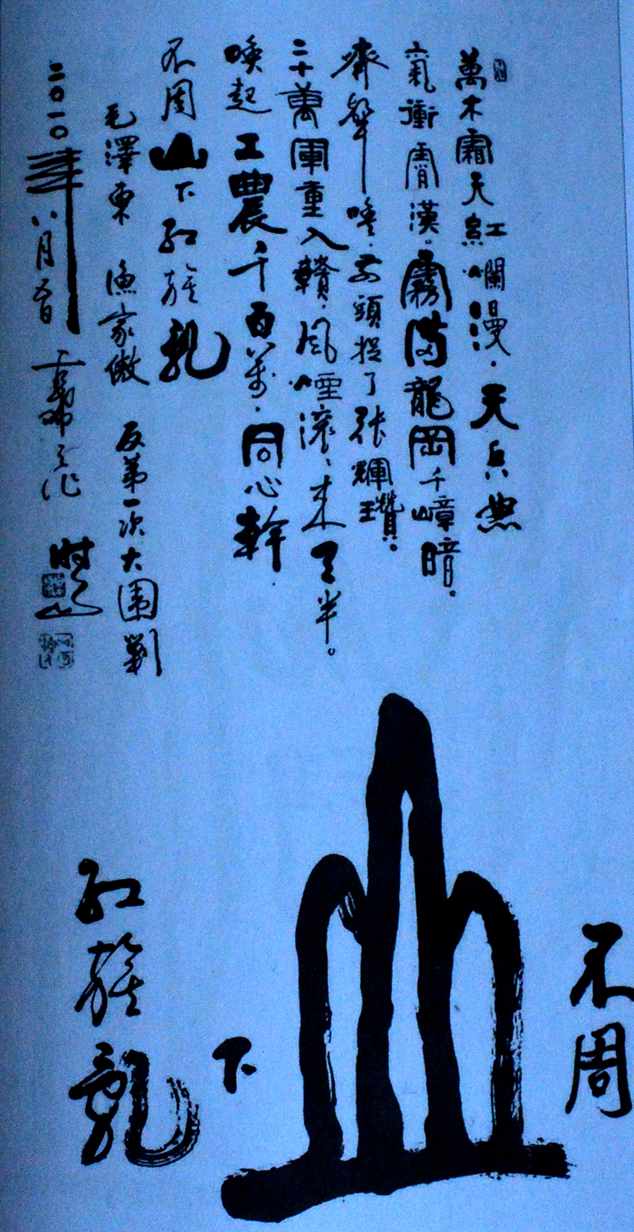 萬木霜天紅爛漫.天兵怒
氣衝霄漢.霧滿龍岡千嶂暗.
齊聲喚.前頭捉了張輝瓚.
二十萬軍重入贛.風煙滾、来天半。
喚起工農千百萬.同心幹.
不周山下紅旗亂
毛澤東 漁家傲 反第一次大围剿
二〇一〇年八月
不周
山
下
紅旗亂